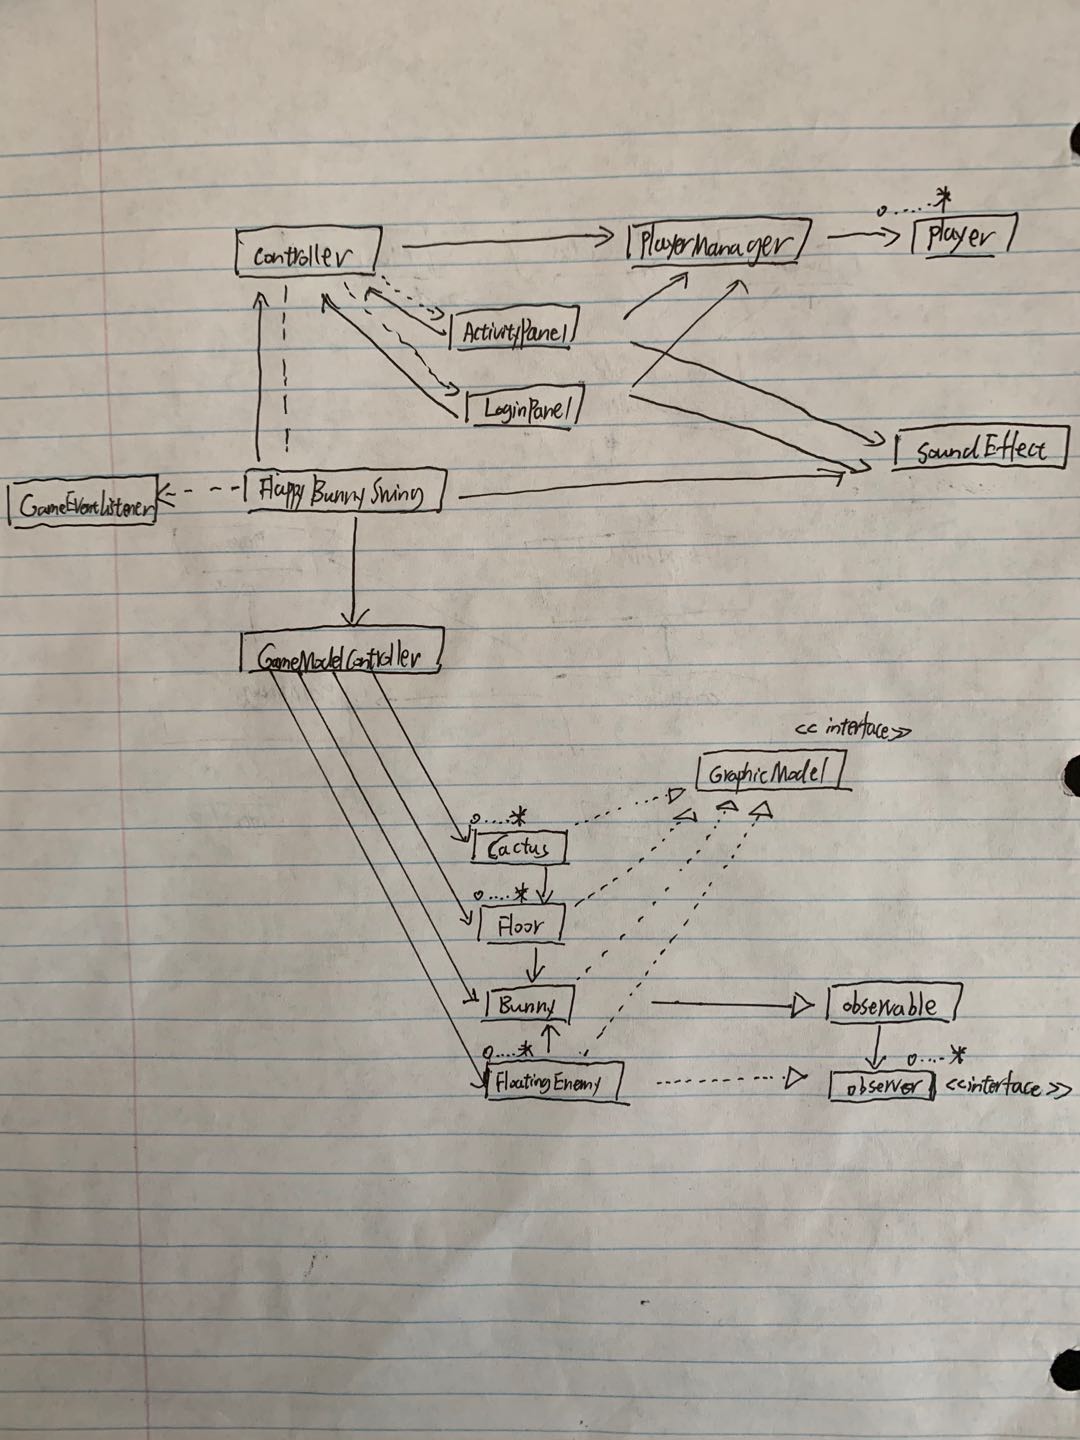 0....*
Controller
PlayerManager
Player
ActivityPanel
LoginPanel
SoundEffect
GameEventListener
FlappyBunnySwing
GameModelController
<< interface >>
GraphicModel
0....*
Cactus
0....*
Floor
Bunny
observable
0....*
0....*
FloatingEnemy
observer <<interface>>